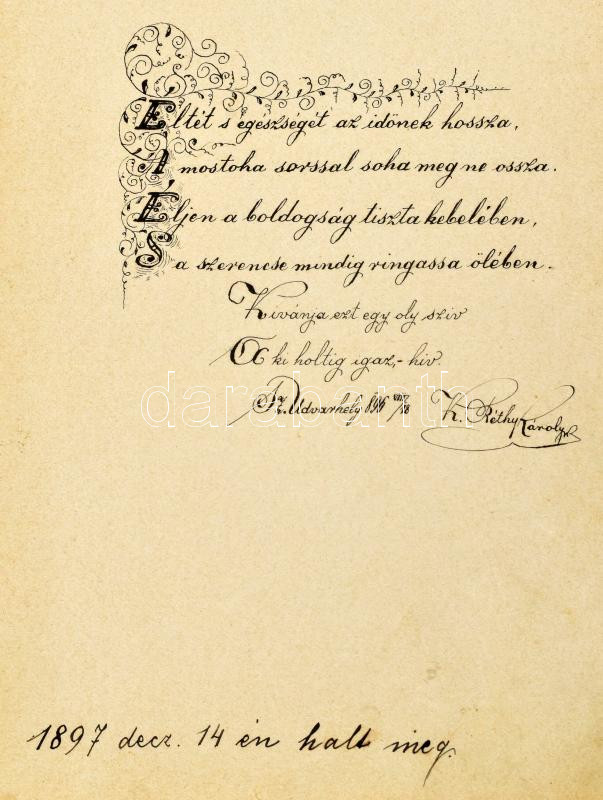 Éltét s egészségét az időnek hossza,
A mostoha sorssal soha meg ne ossza.
Éljen a boldogság tiszta kebelében,
S a szerencse mindig ringassa ölében.
Kivánja ezt egy oly sziv
A ki holtig igaz,- hiv.
Sz. Udvarhely 896
K. Réthy Károly
darabanth
1897 decz. 14 én halt meg.